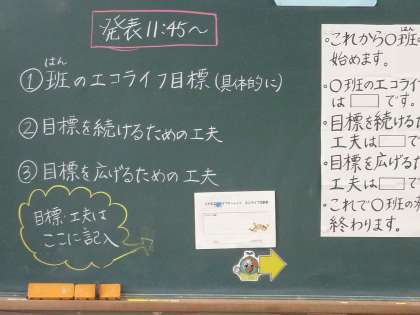 発表11:45〜
はん
①班のエコライフ目標(具体的に)
②目標を続けるための工夫
③目標を広げるための工夫
目標・工夫は
ここに記入
・これから○班の
始めます。
・○班のエコライ
は□です。
・目標を続けるた
工夫は□で
・目標を広げるた
工夫は□で
・これで○班の
終わります。